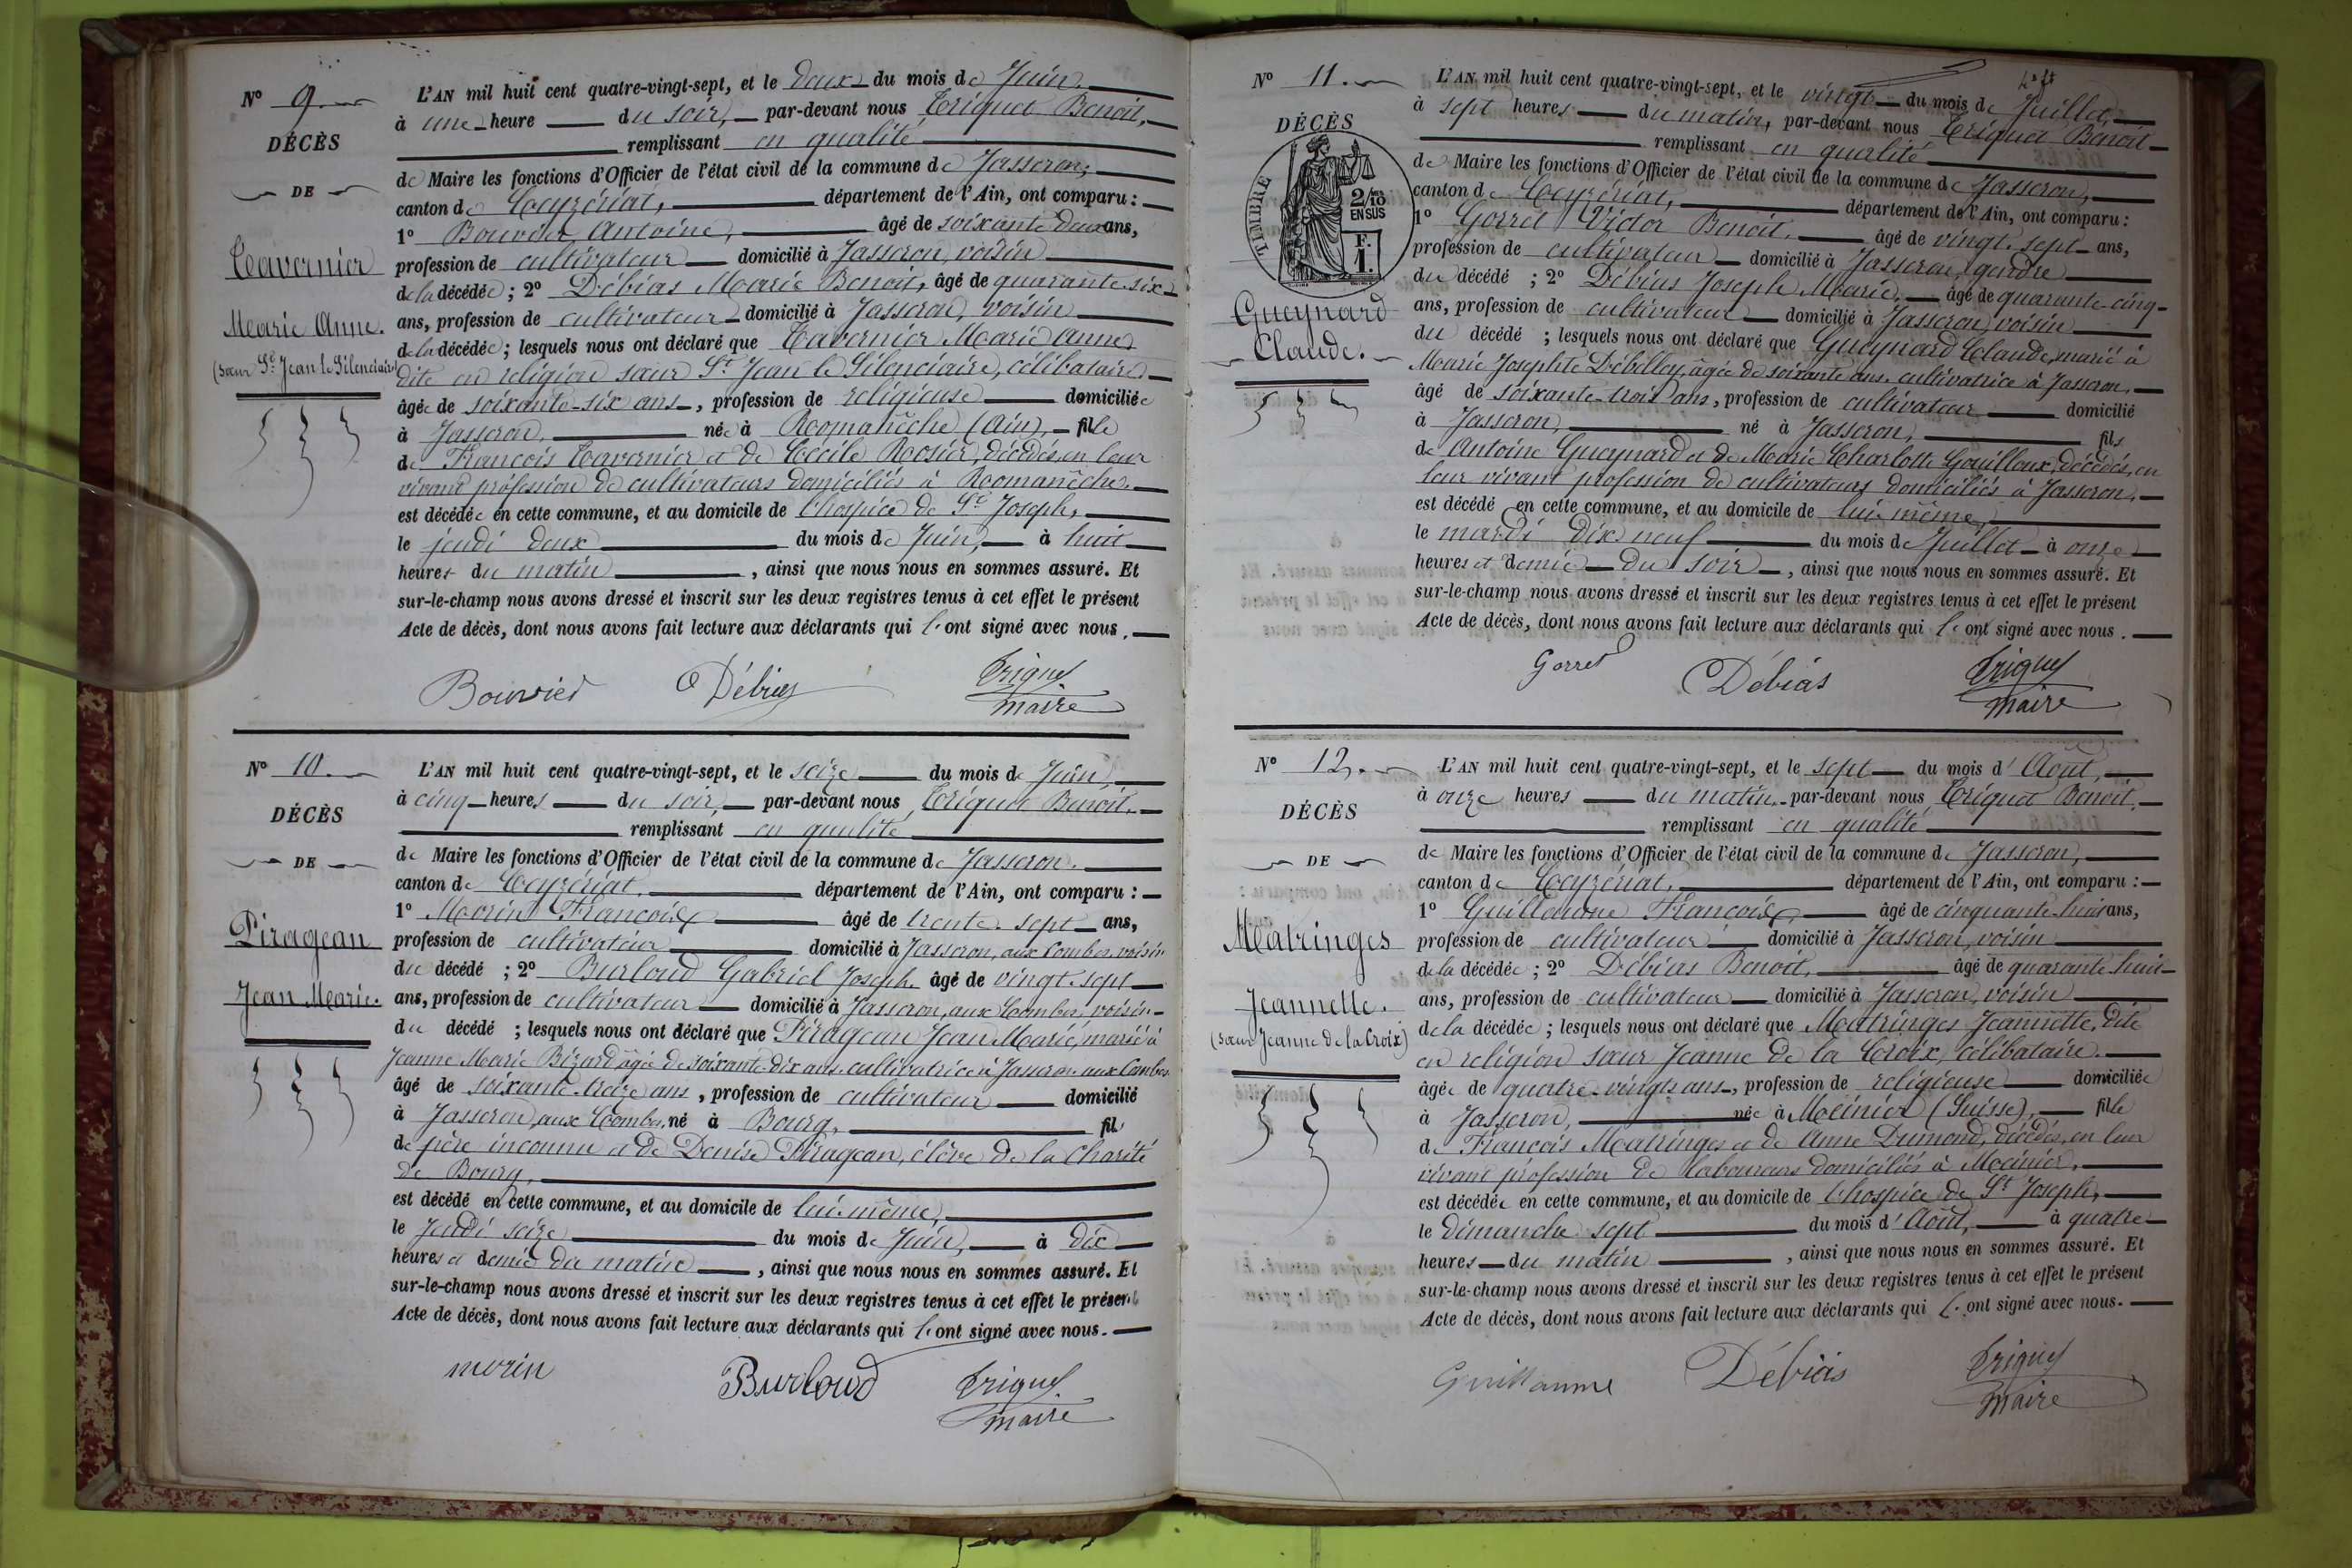 N° 9.
DÉCÈS
DE
Tavernier
Marie Anne.
(sœur St Jean le Silenciaire)
L'AN mil huit cent quatre-vingt-sept, et le deux du mois de Juin,
à une heure du soir, par-devant nous Triquet Benoit,
remplissant en qualité
de Maire les fonctions d'Officier de l'état civil de la commune de Jasseron,
canton de Ceyzériat, département de l'Ain, ont comparu :
1° Bouvier Antoine, âgé de soixante deux ans,
profession de cultivateur domicilié à Jasseron, voisin
de la décédée ; 2° Débias Marie Benoit, âgé de quarante-six
ans, profession de cultivateur domicilié à Jasseron, voisin
de la décédée ; lesquels nous ont déclaré que Tavernier Marie Anne,
dite en religion sœur St Jean le Silenciaire, célibataire,
âgée de soixante-six ans, profession de religieuse domiciliée
à Jasseron, née à Romanêche (Ain), fille
de François Tavernier et de Cécile Rosier, décédés, en leur
vivant profession de cultivateurs domiciliés à Romanêche.
est décédée en cette commune, et au domicile de l'hospice de St Joseph,
le jeudi deux du mois de Juin, à huit
heures du matin, ainsi que nous nous en sommes assuré. Et
sur-le-champ nous avons dressé et inscrit sur les deux registres tenus à cet effet le présent
Acte de décès, dont nous avons fait lecture aux déclarants qui l'ont signé avec nous.
Bouvier Débias Triquet
maire
N° 10.
DÉCÈS
DE
Piragean
Jean Marie.
L'AN mil huit cent quatre-vingt-sept, et le seize du mois de Juin,
à cinq heures du soir, par-devant nous Triquet Benoit,
remplissant en qualité
de Maire les fonctions d'Officier de l'état civil de la commune de Jasseron.
canton de Ceyzériat, département de l'Ain, ont comparu :
1° Morin François âgé de trente-sept ans,
profession de cultivateur domicilié à Jasseron, aux Combes, voisin
du décédé ; 2° Burloud Gabriel Joseph, âgé de vingt-sept
ans, profession de cultivateur domicilié à Jasseron, aux Combes, voisin
du décédé ; lesquels nous ont déclaré que Piragean Jean Marie, marié à
Jeanne Marie Bizard âgée de soixante-dix ans, cultivatrice à Jasseron aux Combes
âgé de soixante-treize ans, profession de cultivateur domicilié
à Jasseron, aux Combes, né à Bourg, fils
de père inconnu et de Denise Piragean, élève de la Charité
de Bourg,
est décédé en cette commune, et au domicile de lui-même,
le jeudi seize du mois de Juin, à dix
heures et demie du matin, ainsi que nous nous en sommes assuré. Et
sur-le-champ nous avons dressé et inscrit sur les deux registres tenus à cet effet le présent
Acte de décès, dont nous avons fait lecture aux déclarants qui l'ont signé avec nous.
morin Burloud Triquet
maire
N° 11.
DÉCÈS
TIMBRE
2/10es
EN SUS
F.
1.
Gueynard
Claude.
L'AN mil huit cent quatre-vingt-sept, et le vingt du mois de Juillet,
à sept heures du matin, par-devant nous Triquet Benoit
remplissant en qualité
de Maire les fonctions d'Officier de l'état civil de la commune de Jasseron,
canton de Ceyzériat, département de l'Ain, ont comparu :
1° Gorret Victor Benoit, âgé de vingt-sept ans,
profession de cultivateur domicilié à Jasseron, gendre
du décédé ; 2° Débias Joseph Marie, âgé de quarante-cinq
ans, profession de cultivateur domicilié à Jasseron, voisin
du décédé ; lesquels nous ont déclaré que Gueynard Claude, marié à
Marie Josephte Débelley, âgée de soixante ans, cultivatrice à Jasseron,
âgé de soixante-trois ans, profession de cultivateur domicilié
à Jasseron, né à Jasseron, fils
de Antoine Gueynard et de Marie Charlotte Gouilloux, décédés, en
leur vivant profession de cultivateurs domiciliés à Jasseron,
est décédé en cette commune, et au domicile de lui-même,
le mardi dix neuf du mois de Juillet à onze
heures et demie du soir, ainsi que nous nous en sommes assuré. Et
sur-le-champ nous avons dressé et inscrit sur les deux registres tenus à cet effet le présent
Acte de décès, dont nous avons fait lecture aux déclarants qui l'ont signé avec nous.
Gorret Débias Triquet
maire
N° 12.
DÉCÈS
DE
Matringes
Jeannette.
(sœur Jeanne de la Croix)
L'AN mil huit cent quatre-vingt-sept, et le sept du mois d'Août,
à onze heures du matin, par-devant nous Triquet Benoit,
remplissant en qualité
de Maire les fonctions d'Officier de l'état civil de la commune de Jasseron,
canton de Ceyzériat, département de l'Ain, ont comparu :
1° Guillaume François, âgé de cinquante-huit ans,
profession de cultivateur domicilié à Jasseron, voisin
de la décédée ; 2° Débias Benoit, âgé de quarante-huit
ans, profession de cultivateur domicilié à Jasseron, voisin
de la décédée ; lesquels nous ont déclaré que Matringes Jeannette, dite
en religion sœur Jeanne de la Croix, célibataire.
âgée de quatre-vingts ans, profession de religieuse domiciliée
à Jasseron, née à Meinier (Suisse), fille
de François Matringes et de Anne Dumond, décédés, en leur
vivant profession de laboureurs domiciliés à Meinier,
est décédée en cette commune, et au domicile de l'hospice de St Joseph,
le dimanche sept du mois d'Août, à quatre
heures du matin, ainsi que nous nous en sommes assuré. Et
sur-le-champ nous avons dressé et inscrit sur les deux registres tenus à cet effet le présent
Acte de décès, dont nous avons fait lecture aux déclarants qui l'ont signé avec nous.
Guillaume Débias Triquet
maire